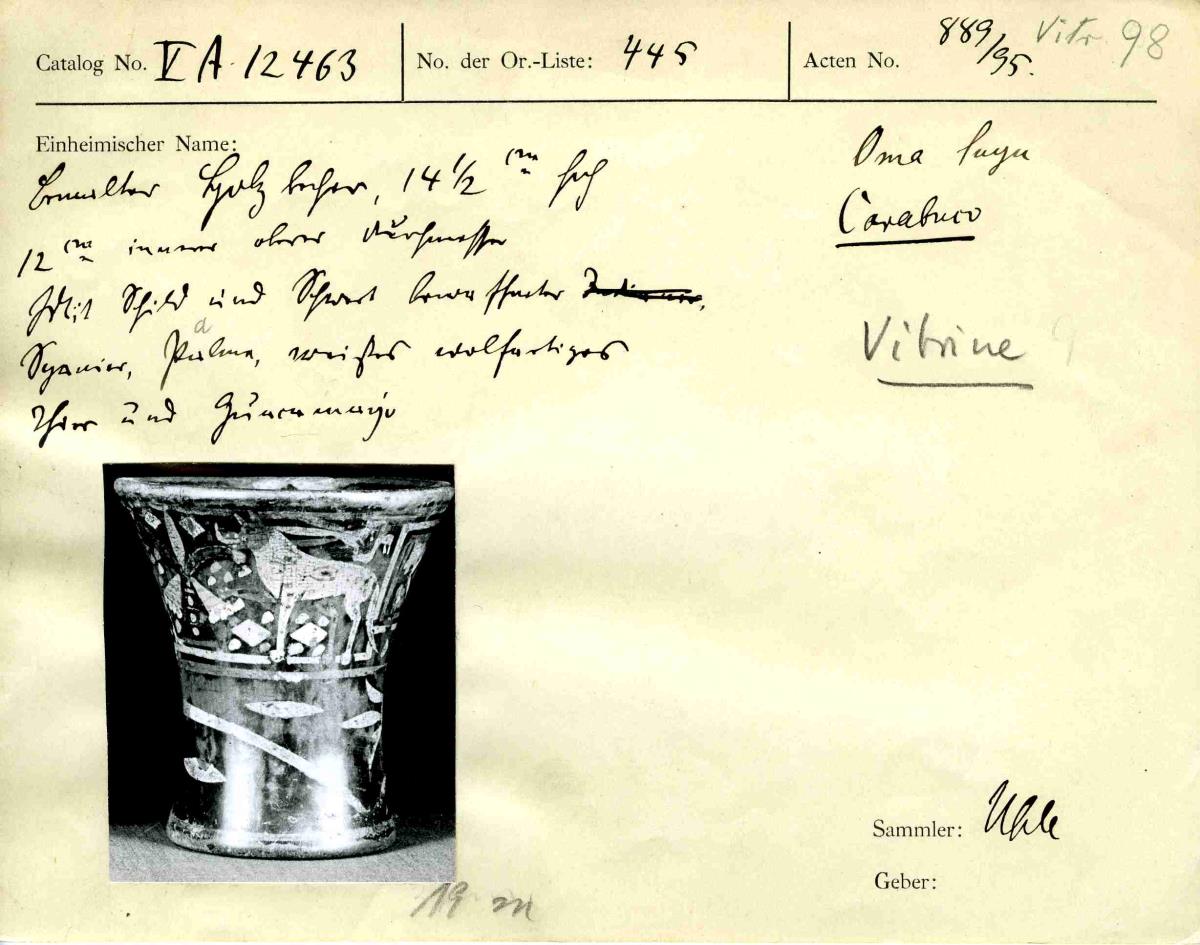 Catalog No. V A 12463
No. der Or.-Liste: 445
Acten No. 889/95. Vitr. 98
Einheimischer Name:
Bemalter Holzbecher, 14 1/2 cm hoch
12 cm innerer oberer Durchmesser
Mit Schild und Schwert bewaffneter Indianer,
Spanier, Palme, weißes wolfartiges
Thier und Guacamayo
Oma suyu
Carabuco
Vitrine 9
Sammler: Uhle
Geber:
19 m